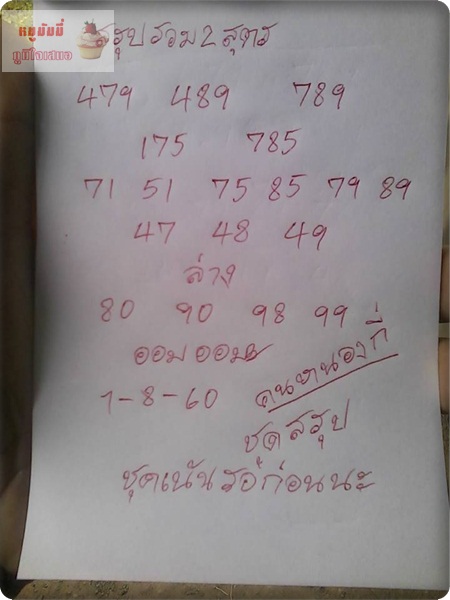 หมูมัมมี่
ยูมิใจเสมอ
สรุปรวม 2 สูตร
479 489 789
175 785
71 51 75 85 79 89
47 48 49
ล่าง
80 90 98 99
ออมออม
1-8-60
คนหนองกี่
ชุดสรุป
ชุดเน้นรอก่อนนะ